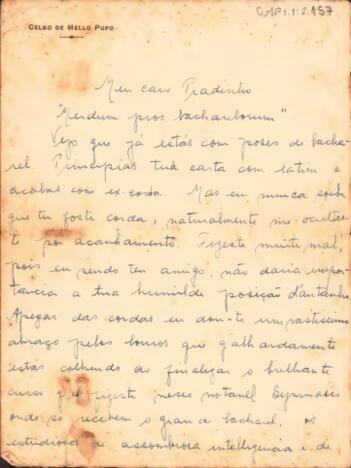 CMP1.1.2.157
CELSO DE MELLO PUPO
Meu caro Pradinho
"Merdum pros bachareborum"
Vejo que já estás com poses de bacha-
rel. Principias tua carta com latim e
acabas com ex-corda. Mas eu nunca soube
que tu foste corda, naturalmente me occultas-
te por acanhamento. Fizeste muito mal,
pois eu sendo teu amigo, não daria impor-
tancia a tua humilde posição d'antanho.
Apezar das cordas eu dou-te um vastissimo
abraço pelos louros que galhardamente
estás colhendo ao finalizar o brilhante
curso que fizeste nesse notavel Gymnasio
onde só recebem o gran de bacharel, os
estudiosos de assombrosa intelligencia e de